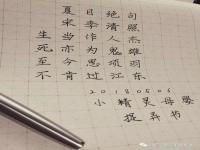 夏日绝句
宋李清照
生当作人杰
死亦为鬼雄
至今思项羽
不肯过江东
20180806
小精灵母婴